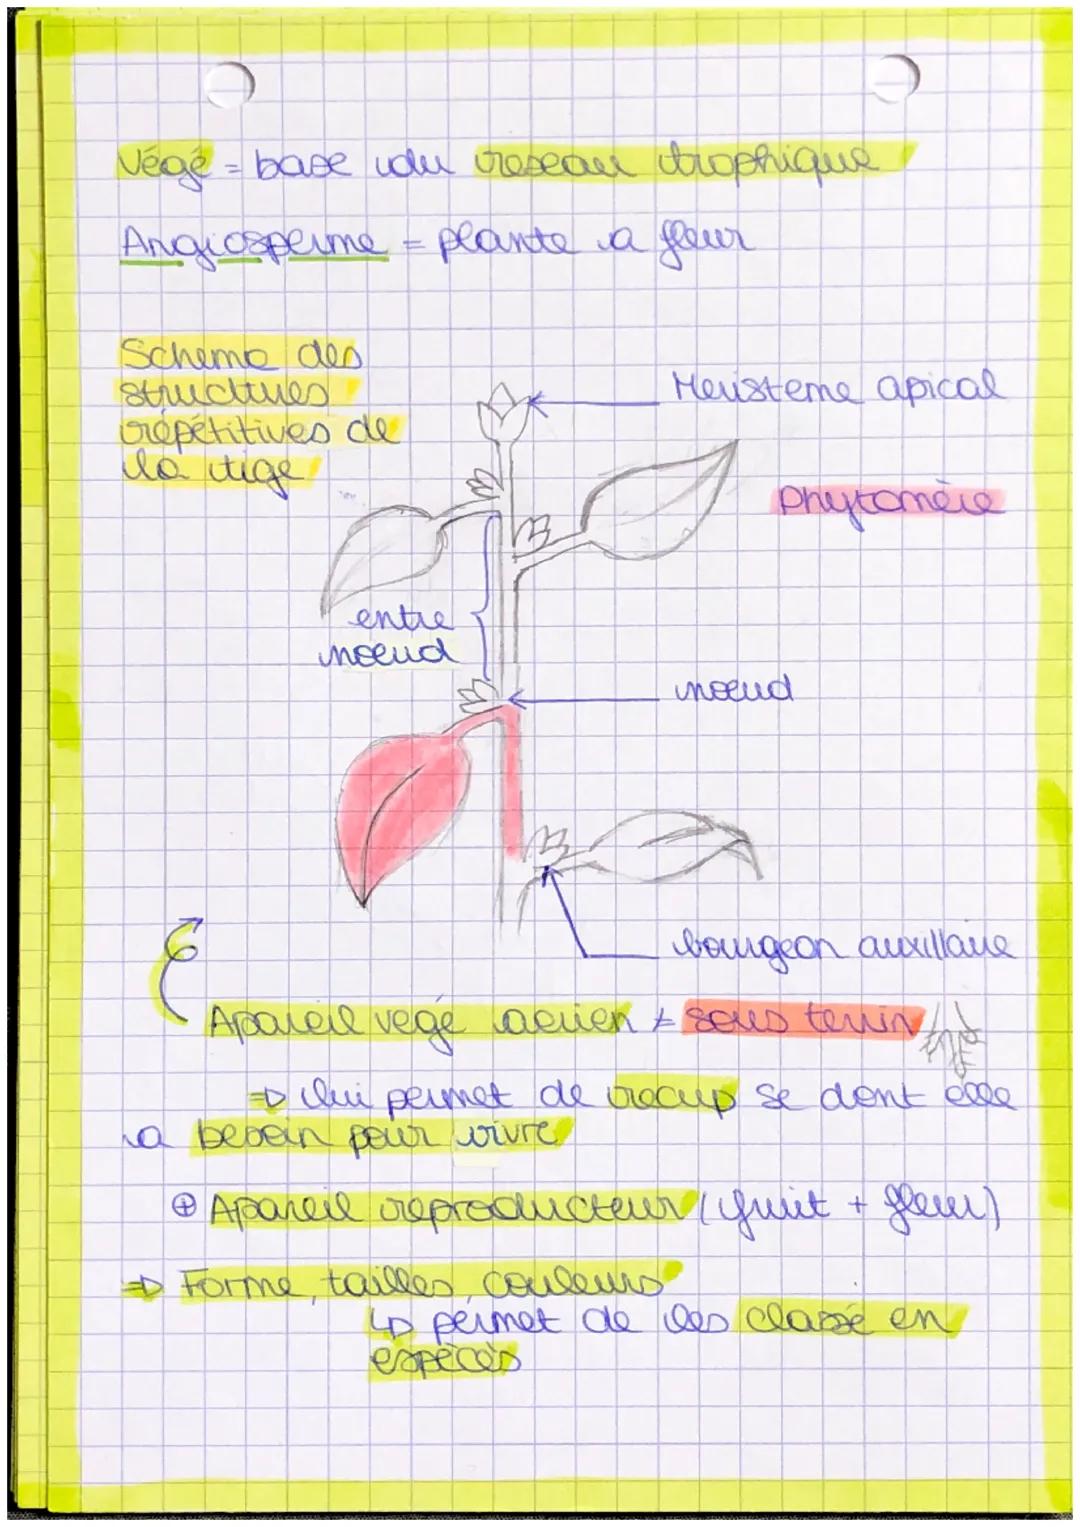 Végé = base du reseau trophique
Angiosperme = plante a fleur
Schema des
structures
répétitives de
la tige
Meristeme apical
Phytomère
entre
noeud
noeud
bourgeon auxillaire
Apareil vegé aerien ≠ sous terrin
⇒ lui permet de recup se dont elle
a besoin pour vivre
⊕ Apareil reproducteur (fruit + fleur)
⇒ Forme, tailles, couleurs
↳ permet de les classé en
espèces